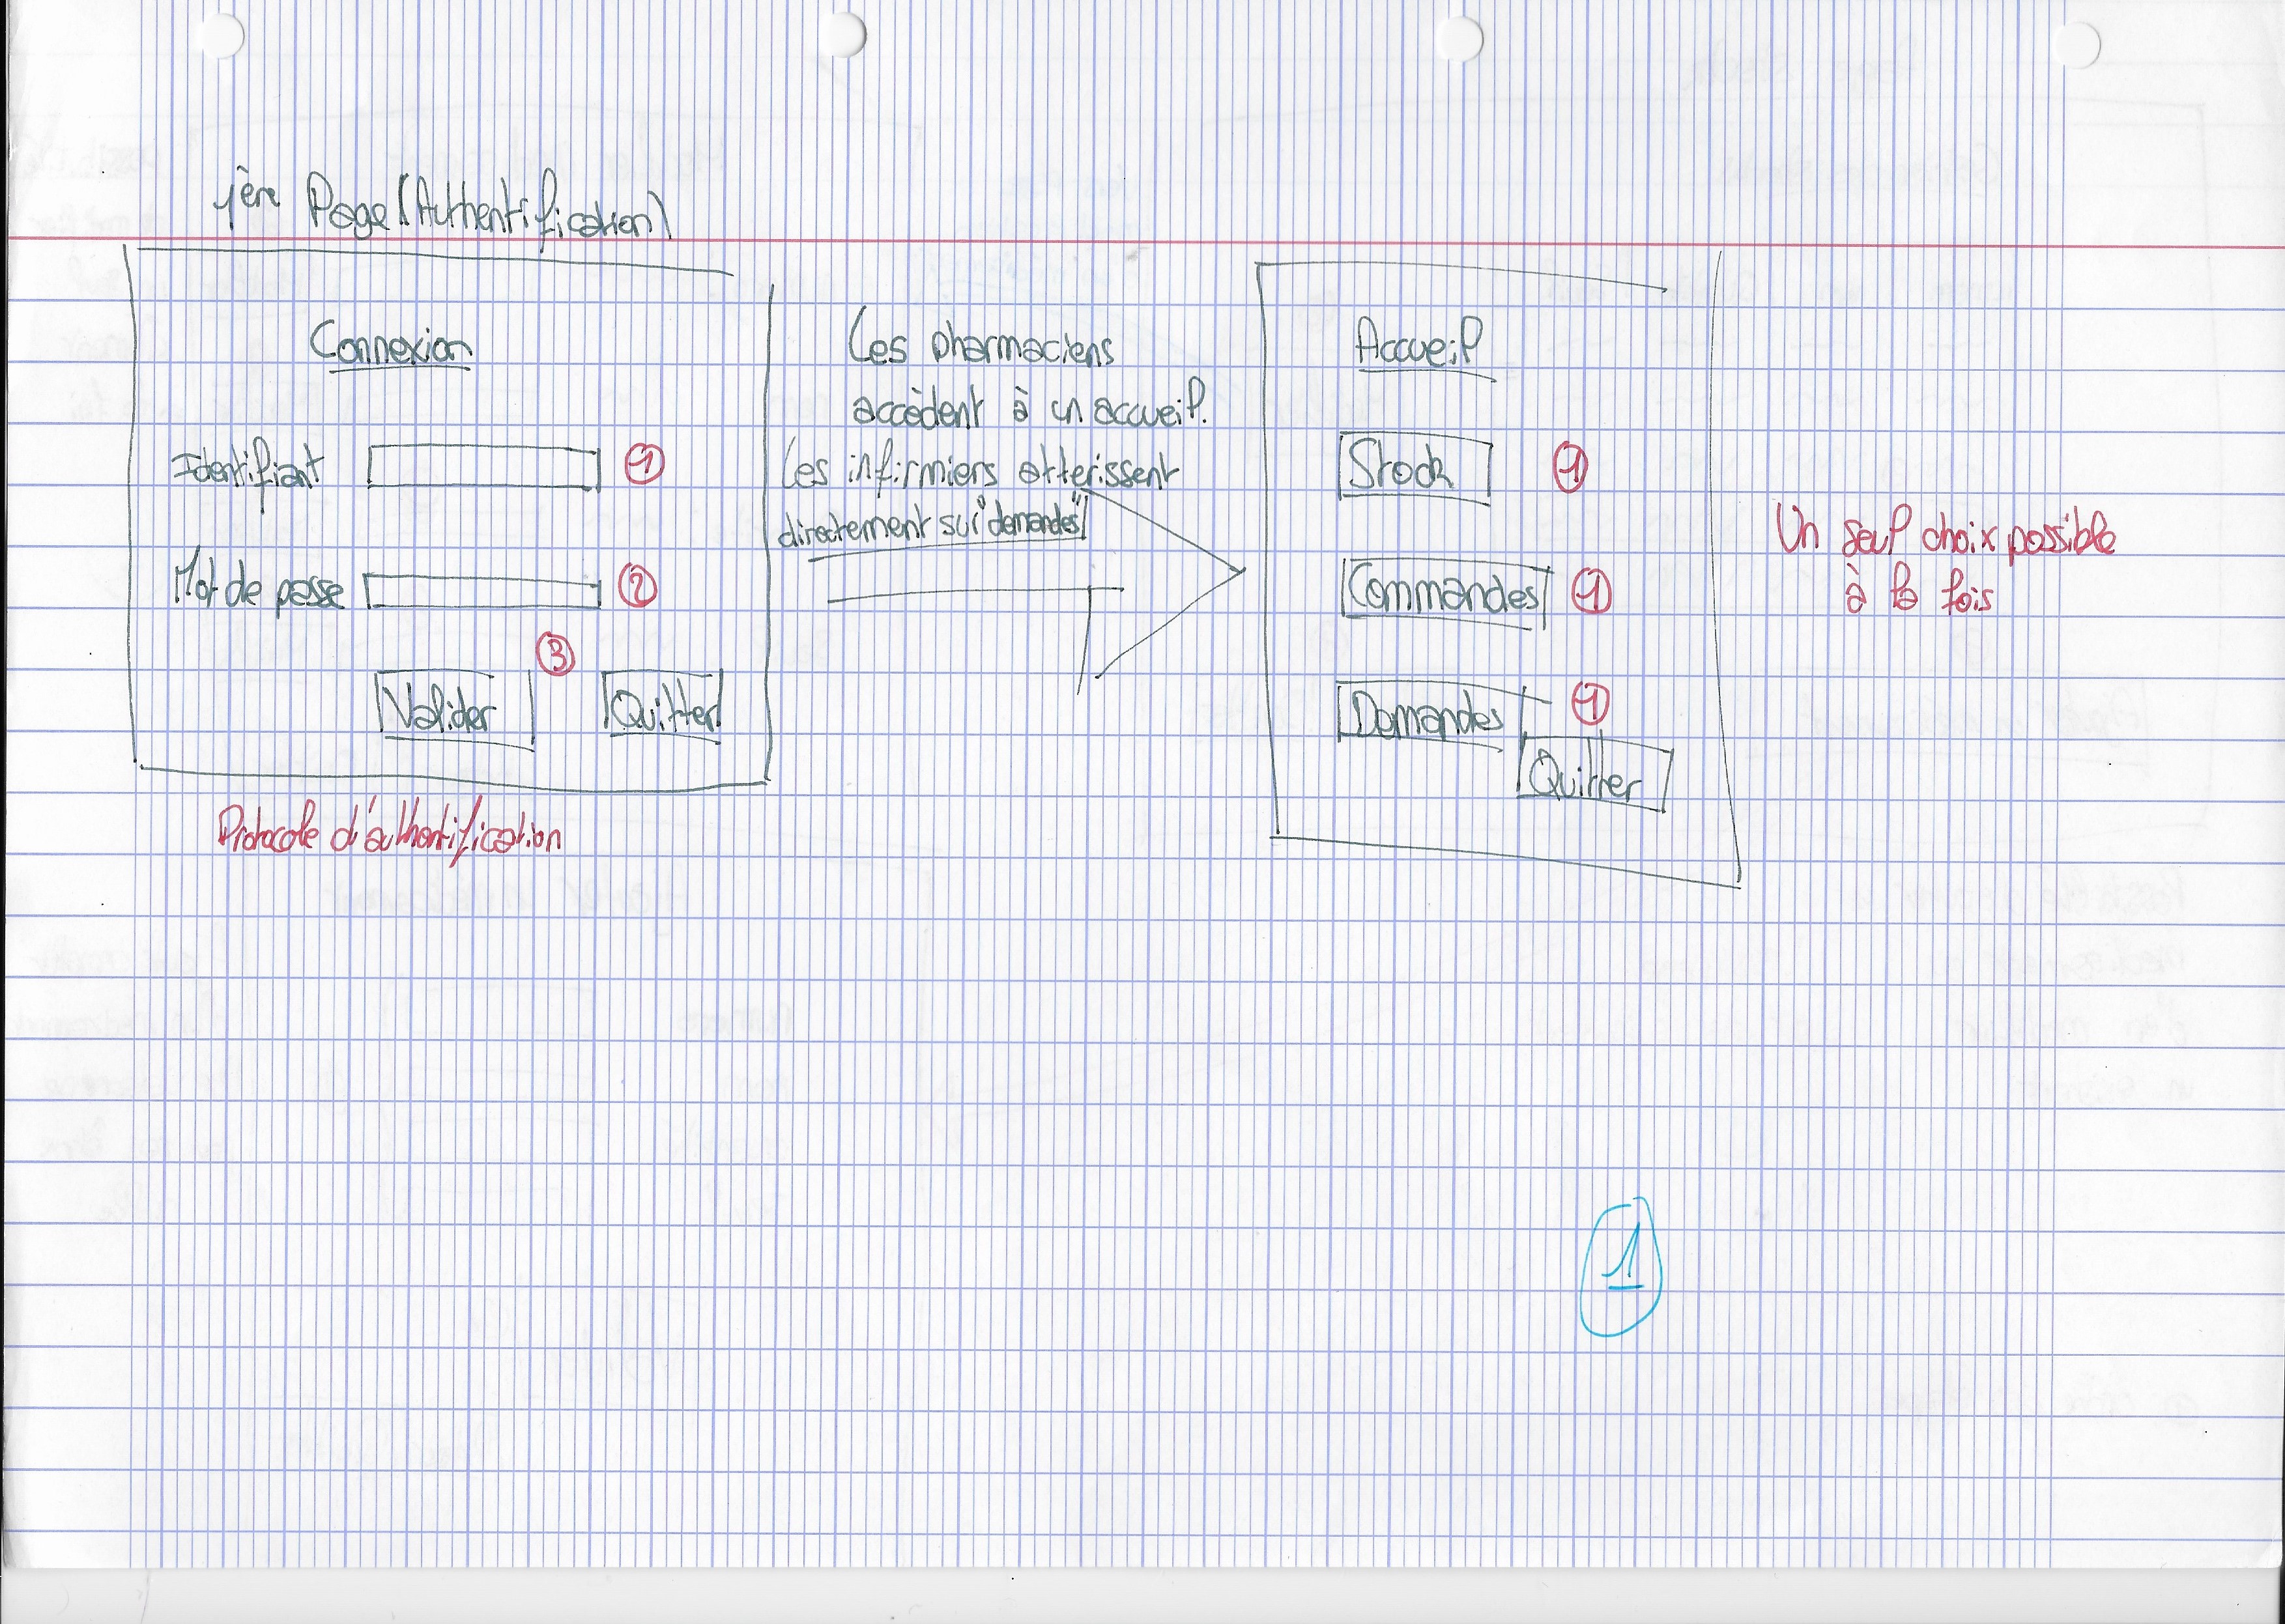 1ère Page (Authentification)
Connexion
Identifiant
①
Mot de passe
②
③
Valider
Quitter
Protocole d'authentification
Les pharmaciens
accèdent à un accueil.
Les infirmiers atterissent
directement sur "demandes"
Accueil
Stock
①
Commandes
①
Demandes
①
Quitter
Un seul choix possible
à la fois
1